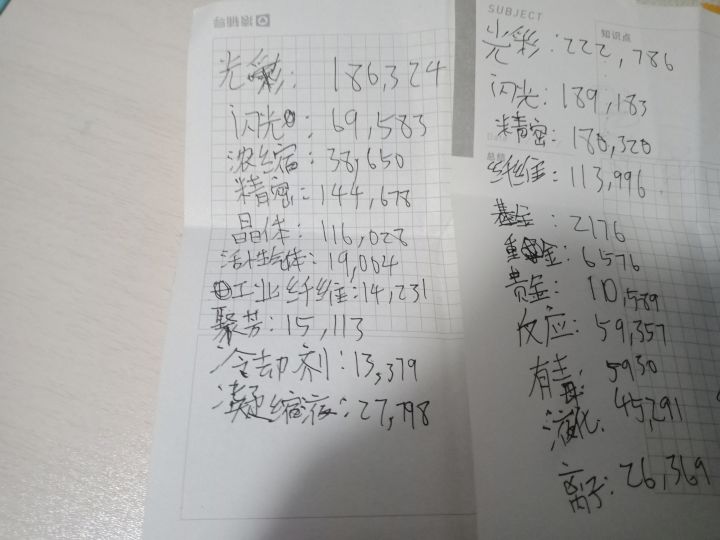 光彩: 186,324
闪光: 69,583
浓缩: 38,650
精密: 144,678
晶体: 116,028
活性气体: 19,004
工业纤维: 14,231
聚芳: 15,113
冷却剂: 13,379
凝缩液: 27,798
SUBJECT
知识点
光彩: 222,786
闪光: 189,183
精密: 180,320
纤维: 113,996
基金: 2176
重金: 6576
贵金: 10,589
反应: 59,357
有毒: 5930
液化: 45,291
离子: 26,369